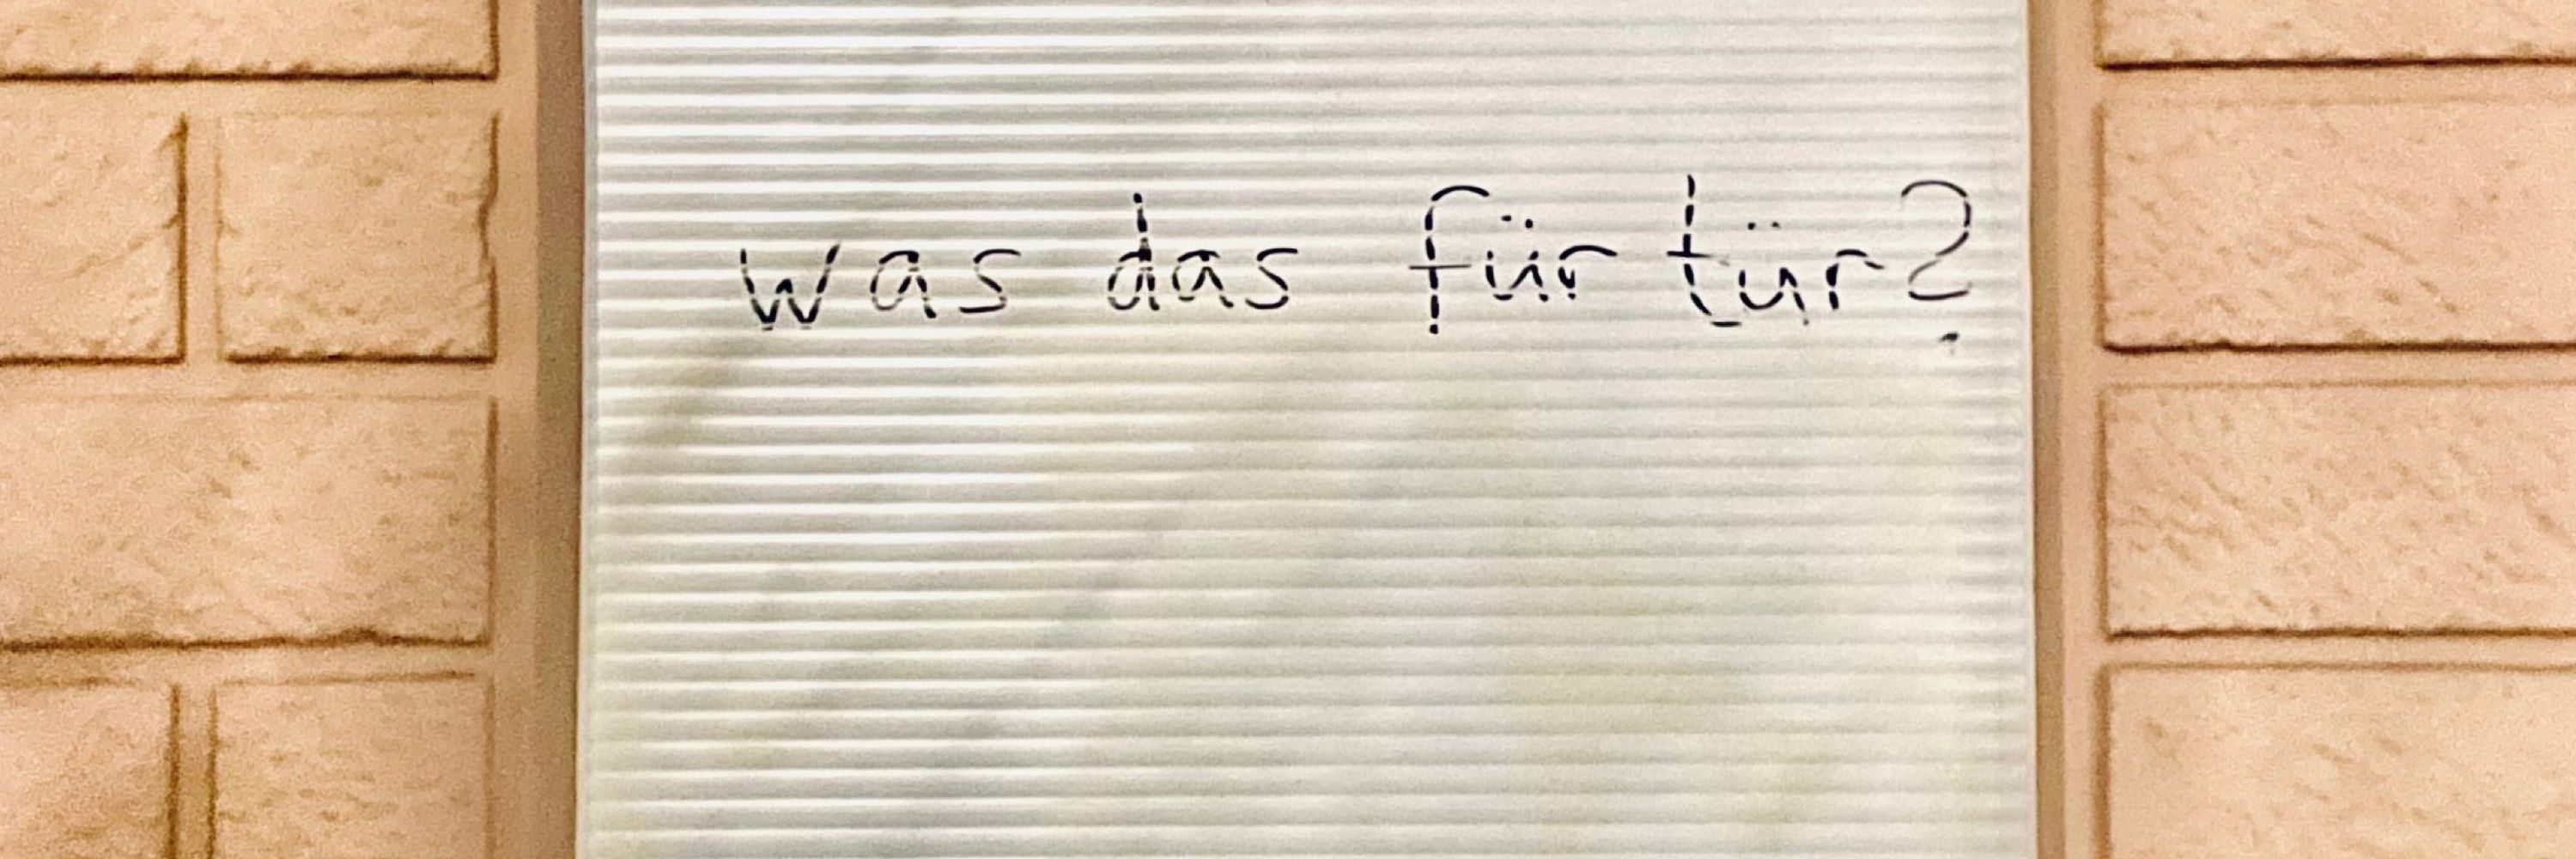 was das für tür?